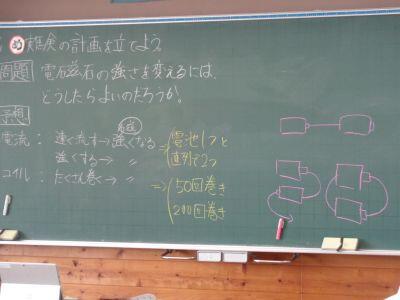 め 実験の計画を立てよう
問題 電磁石の強さを変えるには、
どうしたらよいのだろうか。
予想
電流： 速く流す→強くなる ⇒ 電池1つと
強くする→ 〃 直列で2つ
コイル： たくさん巻く→ 〃 ⇒ 50回巻き
200回巻き